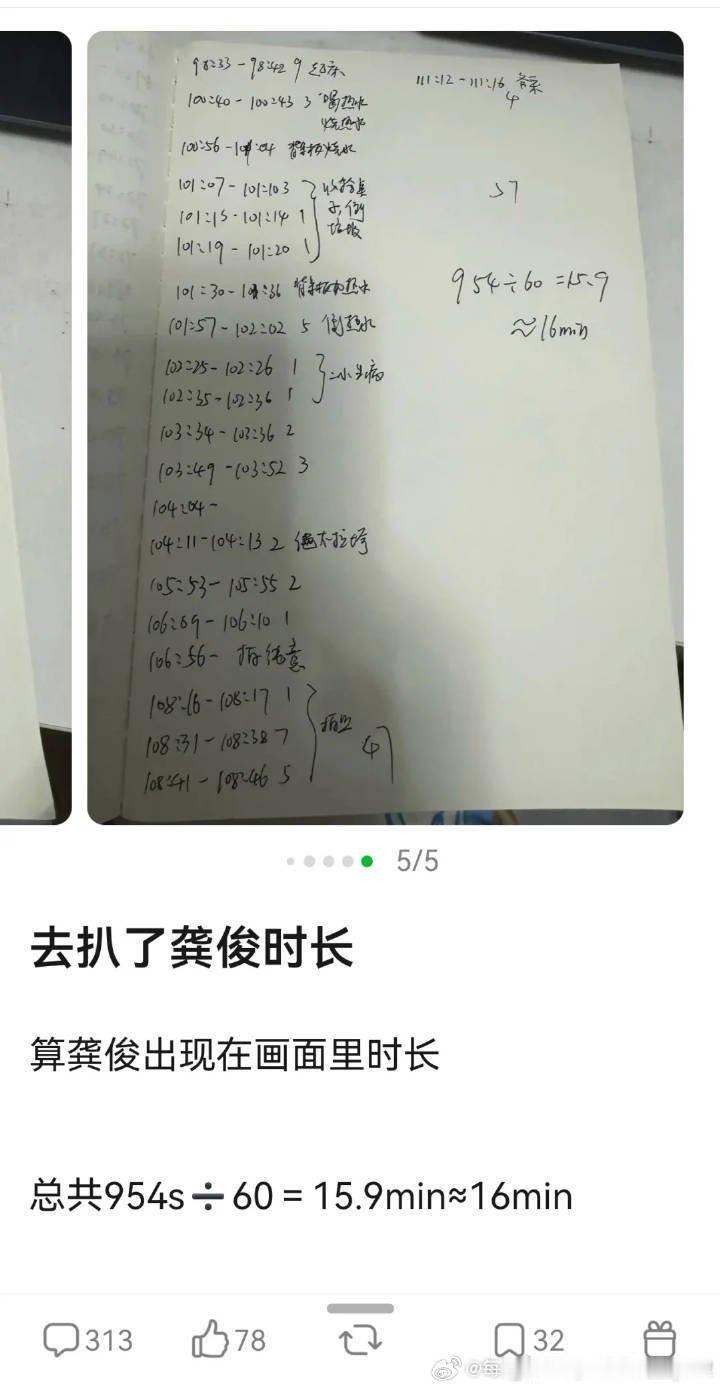 98:33-98:42 9 起床
100:40-100:43 3 喝热水
烧热水
100:56-101:04
101:07-101:103
101:15-101:14 1
101:19-101:20 1
收拾桌
子,倒
垃圾
101:30-101:36
101:57-102:02 5 倒热水
102:25-102:26 1
102:35-102:36 1
103:34-103:36 2
103:49-103:52 3
104:04-
104:11-104:13 2
105:53-105:55 2
106:09-106:10 1
106:56-
108:16-108:17 1
108:31-108:38 7
108:41-108:46 5
47
111:12-111:16
4
57
954÷60=15.9
≈16min
5/5
去扒了龚俊时长
算龚俊出现在画面里时长
总共954s➗60=15.9min≈16min
313 78 32
@每